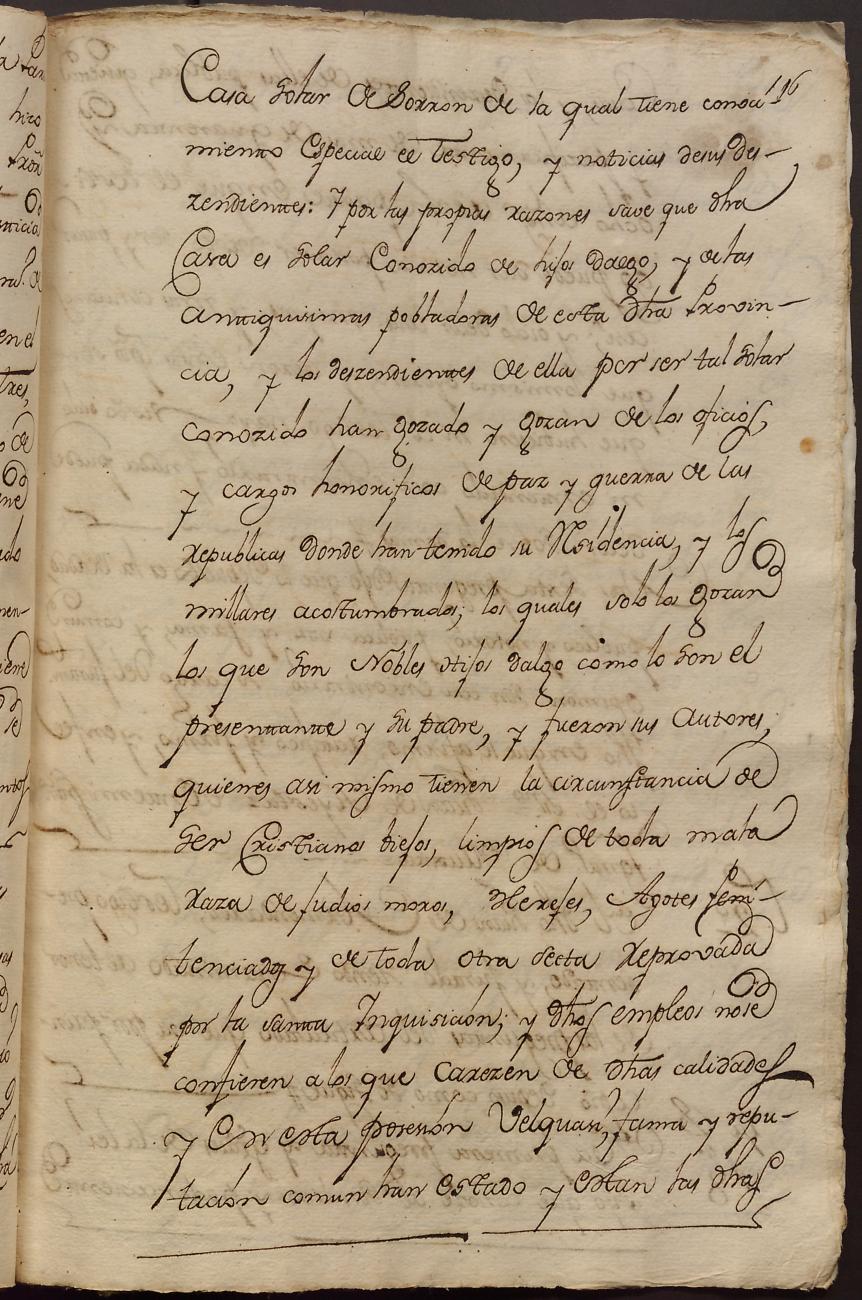 116
Casa solar de Sorron de la qual tiene conoci
miento Especial el Testigo, y noticias desus des-
zendientes: Y por las propias razones save que dha
Casa es solar Conozido de hijos dalgo, y de las
antiquisimas pobladoras de esta dha Provin-
cia, y los deszendientes de ella por ser tal solar
conozido han gozado y gozan de los oficios,
y cargos honorificos de paz y guerra de las
republicas donde han tenido su Residencia, y los
millares acostumbrados; los quales solo los gozan
los que son Nobles hijos dalgo como lo son el
presentante y su padre, y fueron sus autores,
quienes asi mismo tienen la circunstancia de
ser Cristianos viejos, limpios de toda mala
raza de judios moros, Herejes, Agotes Peni-
tenciados y de toda otra secta reprovada
por la santa Inquisición; y dhos empleos nose
confieren a los que carezen de dhas calidades
y en esta posesión Velquasi, fama y repu-
tación comun han estado y estan las dhas